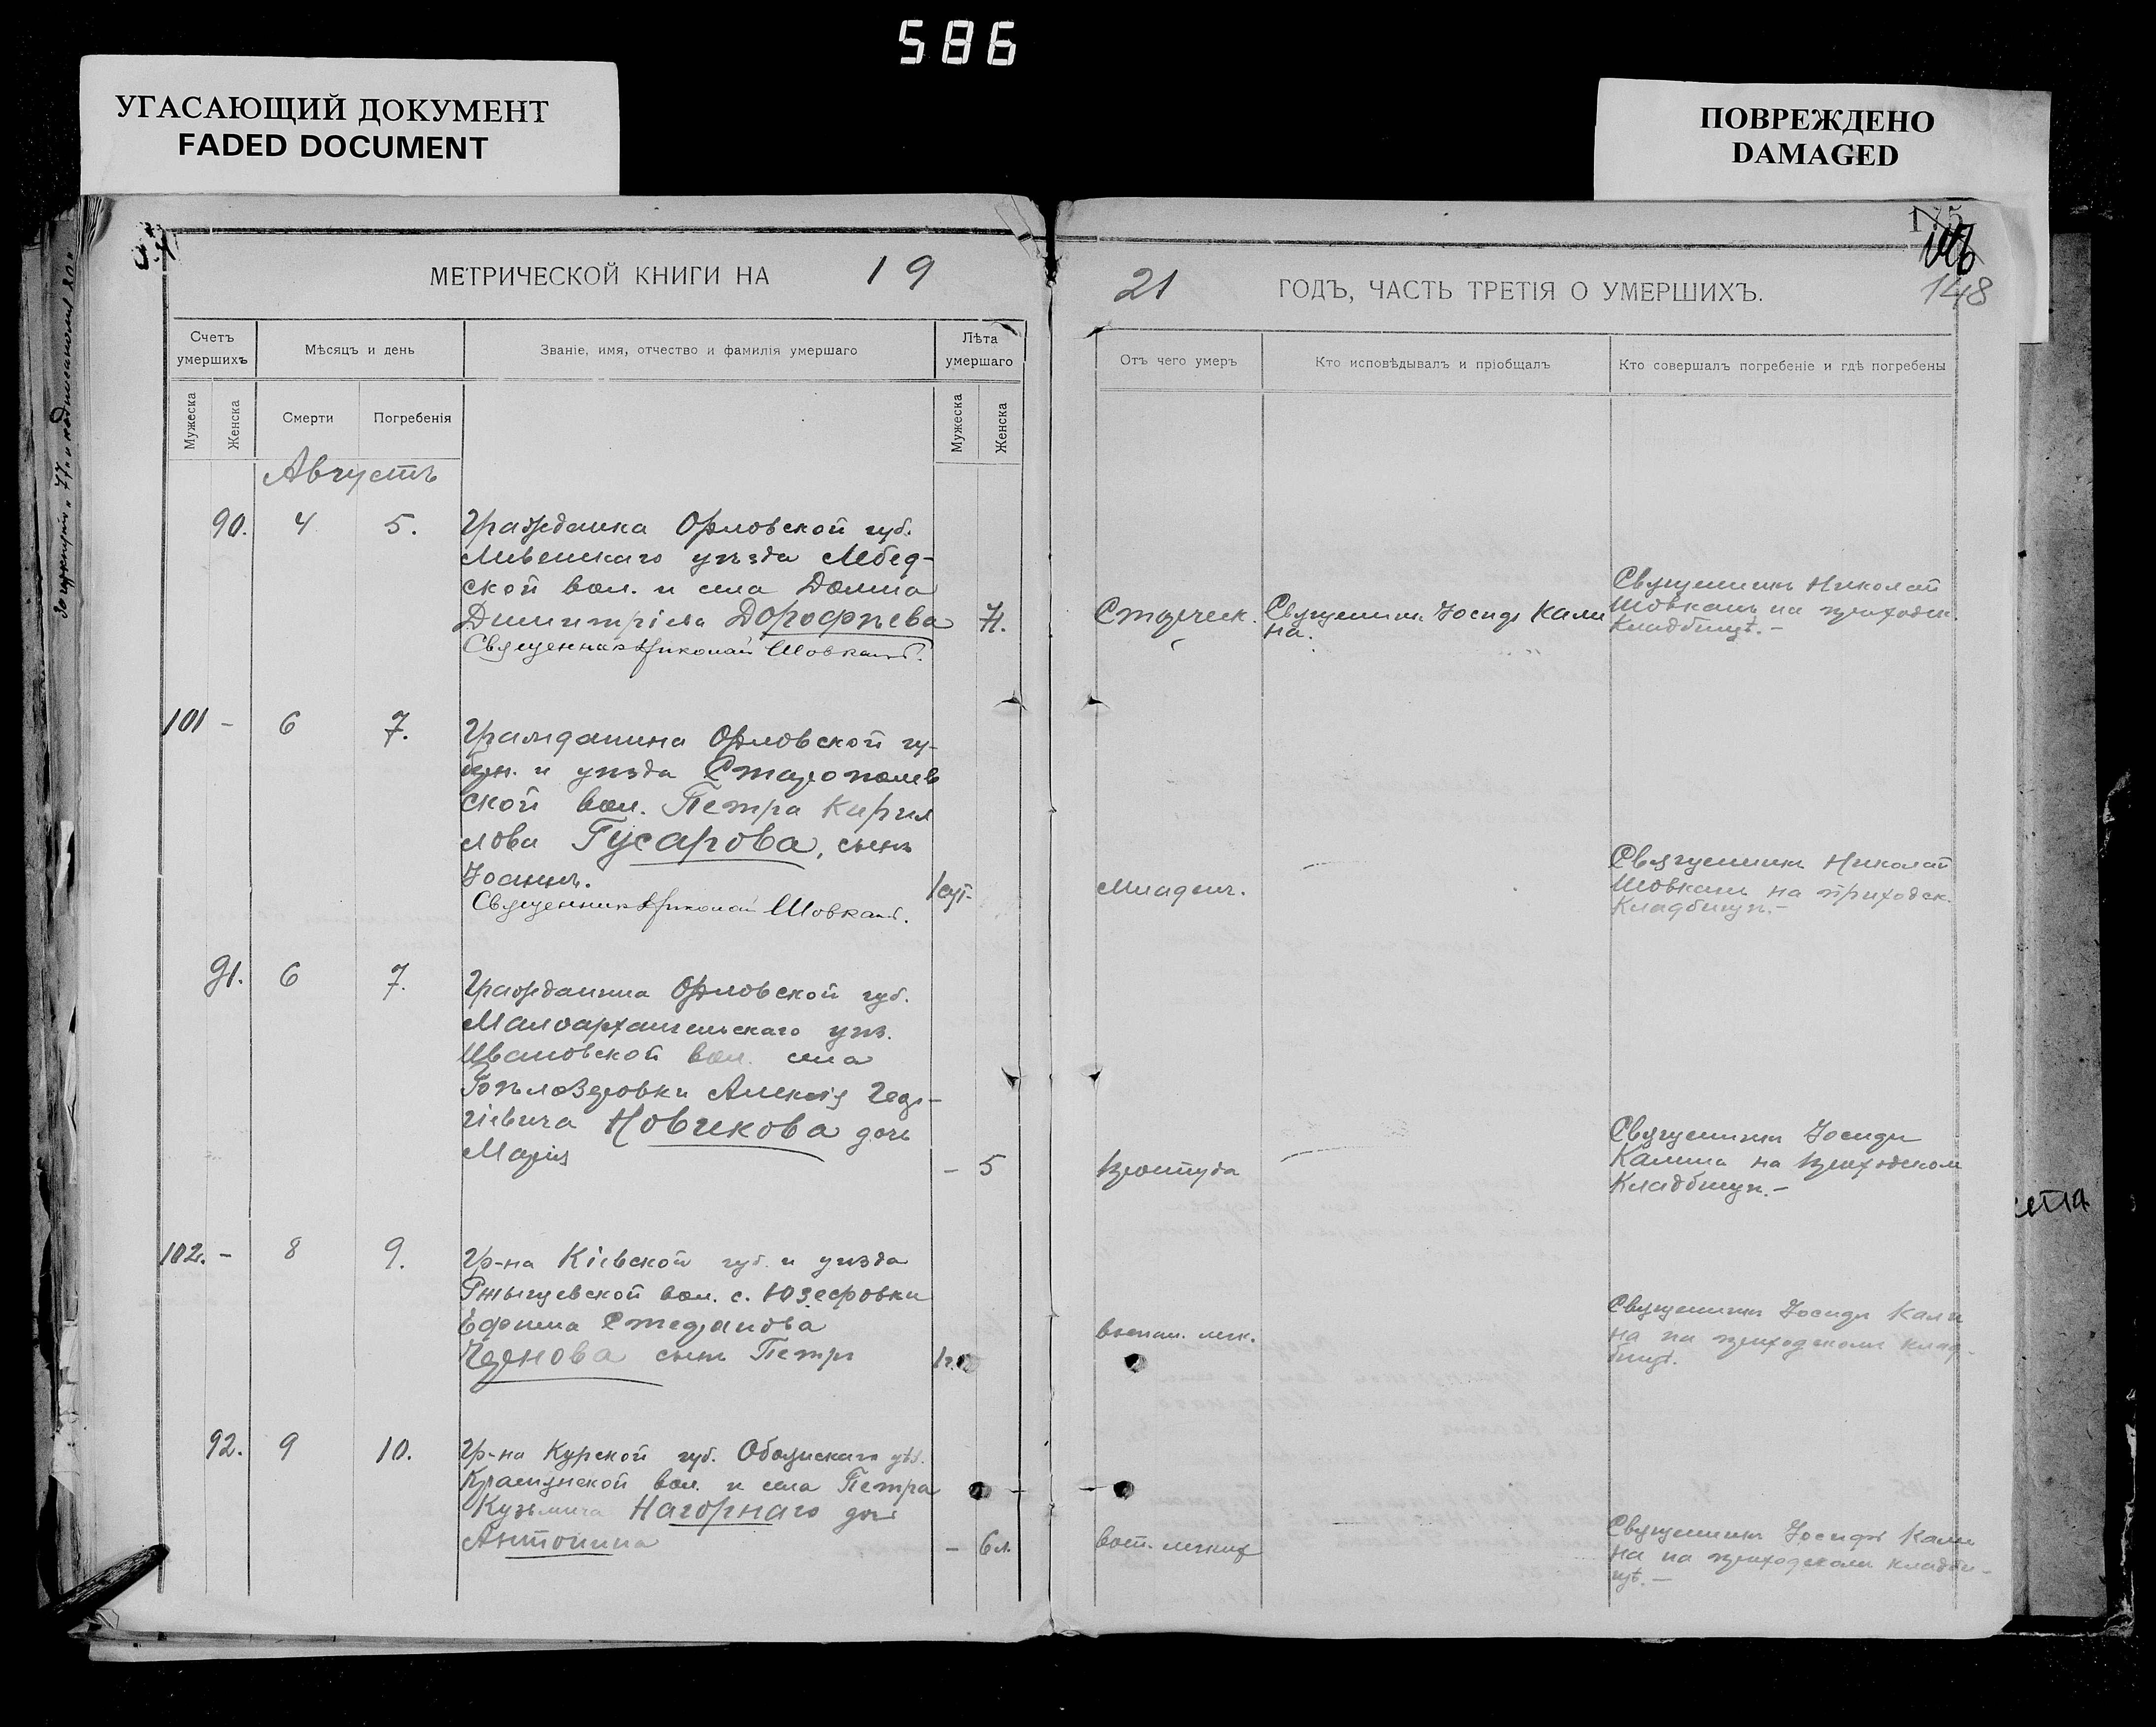 586
УГАСАЮЩИЙ ДОКУМЕНТ
FADED DOCUMENT
ПОВРЕЖДЕНО
DAMAGED
175
148
МЕТРИЧЕСКОЙ КНИГИ НА 19
21 ГОДЪ, ЧАСТЬ ТРЕТІЯ О УМЕРШИХЪ.
Счетъ умершихъ
Мѣсяцъ и день
Званіе, имя, отчество и фамилія умершаго
Лѣта умершаго
Отъ чего умеръ
Кто исповѣдывалъ и пріобщалъ
Кто совершалъ погребеніе и гдѣ погребены
Мужеска
Женска
Смерти
Погребенія
Мужеска
Женска
Августъ
90. 4 5.
Гражданка Орловской губ.
Ливенскаго уѣзда
ской вол. и села
Димитріева Дорофѣева
Священникъ Николай Шовкань.
Старческ.
Священник Іосифъ Кали
на.
Священникъ Николай
Шовкань на приходск.
Кладбищѣ.-
101 - 6 7.
Гражданина Орловской гу-
берн. и уѣзда Старополев
ской вол. Петра Кирил
лова Гусарова, сынъ
Іоаннъ.
Священникъ Николай Шовкань.
1 сут.
Младенч.
Священникъ Николай
Шовкань на приходск.
Кладбищѣ.-
91. 6 7.
Гражданина Орловской губ.
Малоархангельскаго уѣз.
Ивановской вол. села
Алексія Геор-
гіевича Новикова дочь
Марія
- 5
простуда
Священникъ Іосифъ
Калина на приходском
Кладбищѣ.-
102. - 8 9.
Гр-на Кіевской губ. и уѣзда
Ржыщевской вол. с. Юзефовки
Ефима Стефанова
сынъ Петръ
1 г.
воспал. легк.
Священникъ Іосифъ Кали
на на приходском клад-
бищѣ.
92. 9 10.
Гр-на Курской губ. Обоянскаго уѣз.
вол. и села Петра
Кузьмича Нагорнаго дочь
Антонина
- 6 л.
восп. легких
Священникъ Іосифъ Кали
на на приходском кладби-
щѣ.-